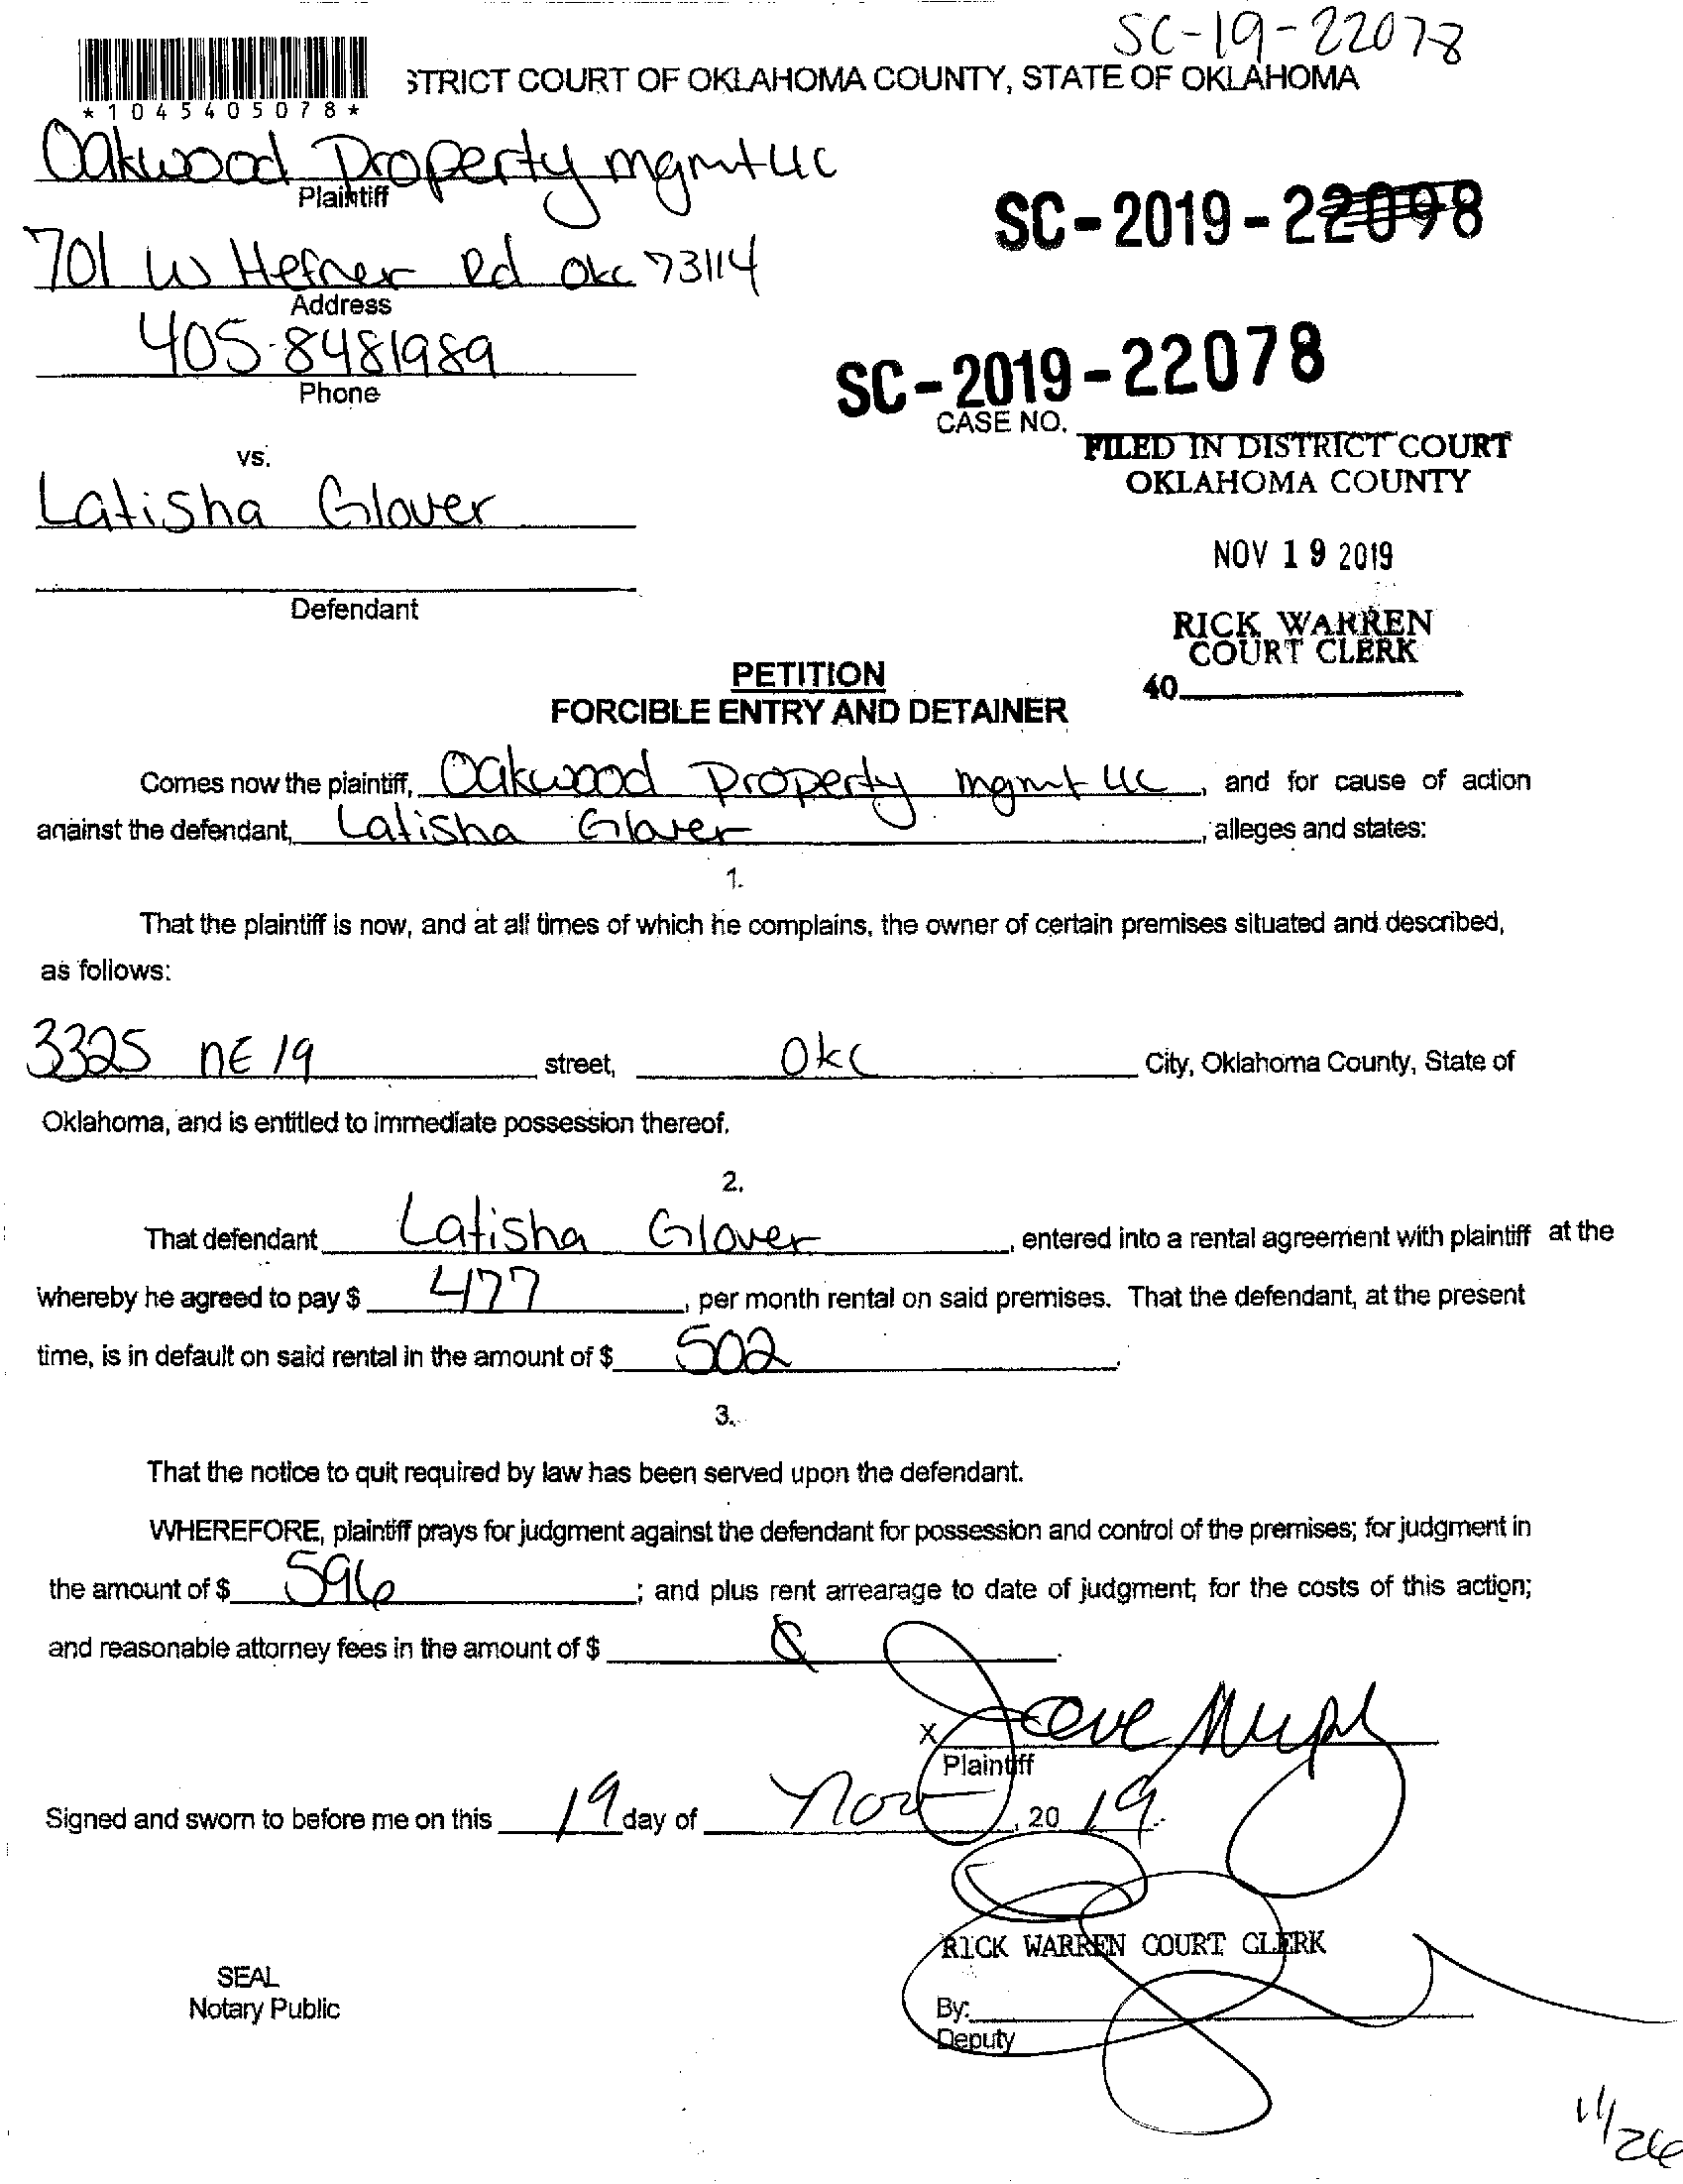 SC-19-22078
STRICT COURT OF OKLAHOMA COUNTY, STATE OF OKLAHOMA
*1045405078*
Oakwood Property mgmt LLC
Plaintiff
SC-2019-22098
701 W Hefner Rd Okc 73114
Address
405-8481989
Phone
SC-2019-22078
CASE NO.
FILED IN DISTRICT COURT
OKLAHOMA COUNTY
vs.
Latisha Glover
NOV 19 2019
Defendant
RICK WARREN
COURT CLERK
40
PETITION
FORCIBLE ENTRY AND DETAINER
Comes now the plaintiff, Oakwood Property mgmt LLC, and for cause of action
against the defendant, Latisha Glover, alleges and states:
1.
That the plaintiff is now, and at all times of which he complains, the owner of certain premises situated and described,
as follows:
3325 NE 19 street, Okc City, Oklahoma County, State of
Oklahoma, and is entitled to immediate possession thereof.
2.
That defendant Latisha Glover, entered into a rental agreement with plaintiff at the
whereby he agreed to pay $ 477, per month rental on said premises. That the defendant, at the present
time, is in default on said rental in the amount of $ 502.
3.
That the notice to quit required by law has been served upon the defendant.
WHEREFORE, plaintiff prays for judgment against the defendant for possession and control of the premises; for judgment in
the amount of $ 596; and plus rent arrearage to date of judgment; for the costs of this action;
and reasonable attorney fees in the amount of $
X
Plaintiff
Signed and sworn to before me on this 19 day of Nov, 20 19.
RICK WARREN COURT CLERK
SEAL
Notary Public
By:
Deputy
11/26